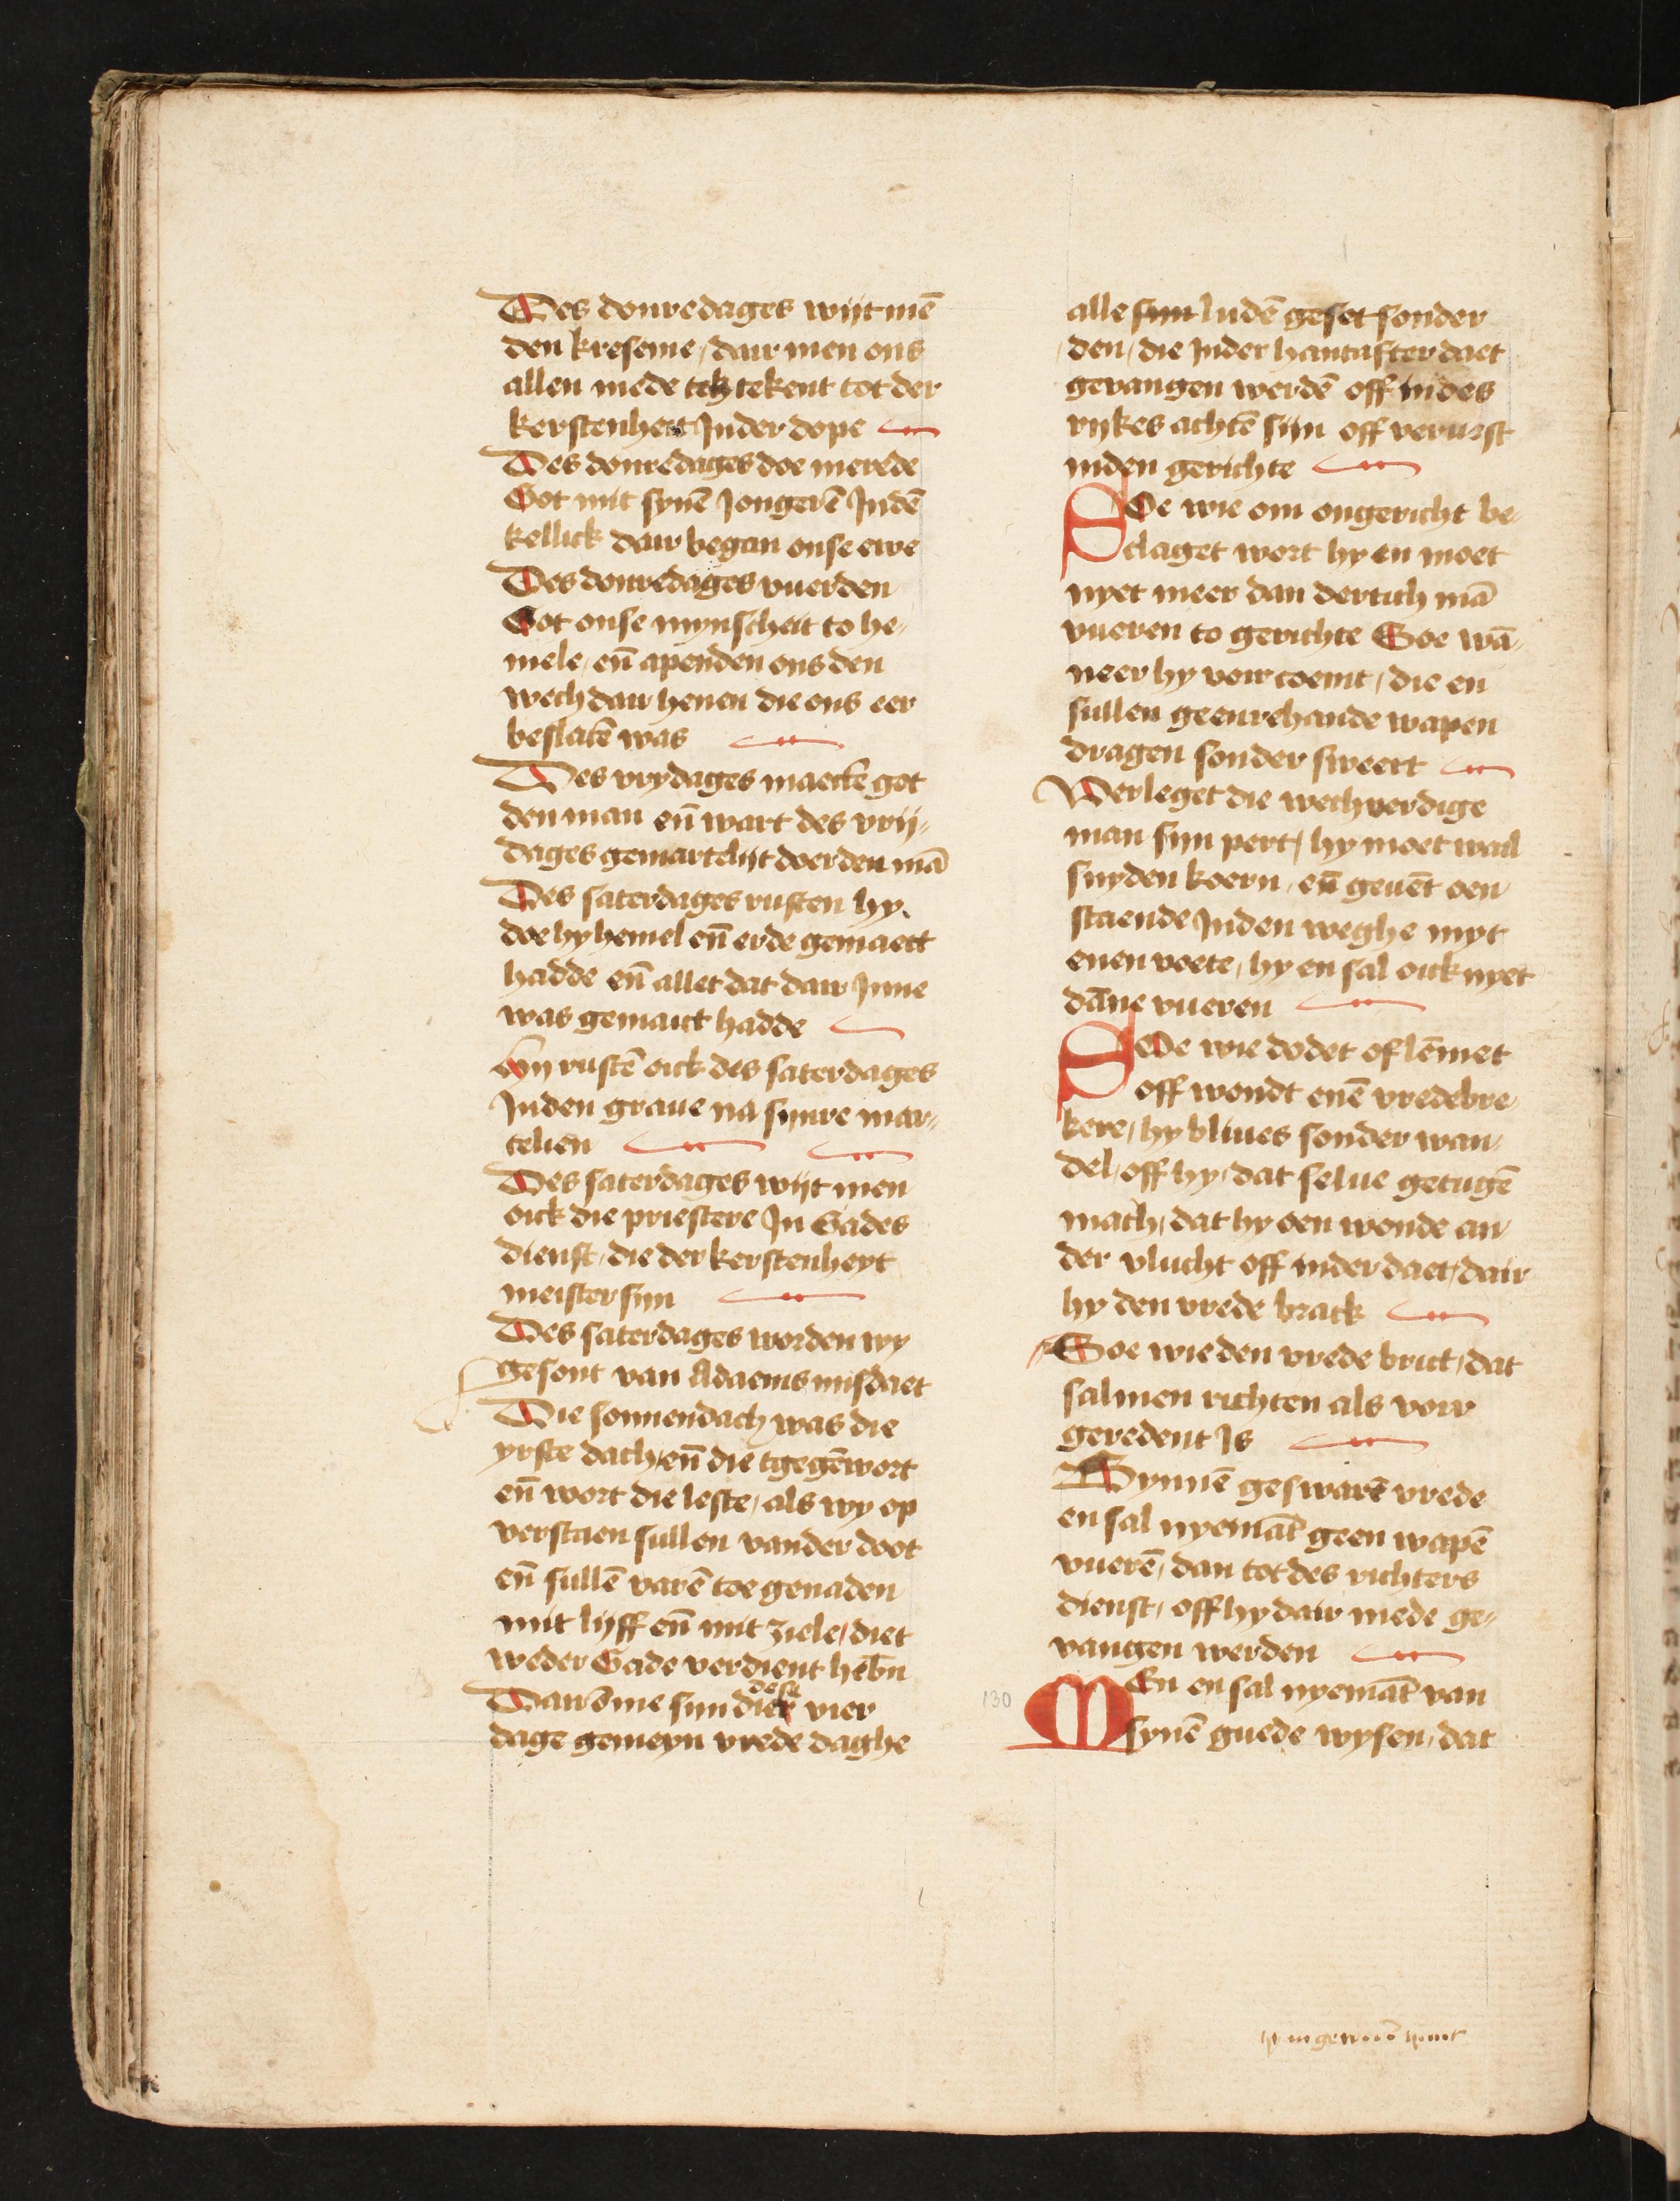 Des donredages wijt mē
den kreseme / dair men ons
allen mede tekent tot der
kerstenheit Jnder dope
Des donredages doe merede
Got mit synē Jongerē Jndē
kellick dair began onse ewe
Des donredages vuerden
Got onse mynscheit to he/
mele / en̄ apenden ons den
wech dair henen die ons eer
beslatē was
Des vrydages maecte got
den man en̄ wart des vrij/
dages gemartelijt doer den mā
Des saterdages rusten hy
doe hy hemel en̄ erde gemaect
hadde en̄ allet dat dair Jnne
was gemaict hadde
Hij rustē oick des saterdages
Jnden graue na sijnre mar/
telien
Des saterdages wijt men
oick die priestere Jn Gades
dienst / die der kerstenheyt
meister sijn
Des saterdages worden wy
gesont van Adaems misdaet
Die sonnendach was die
yrste dach / en̄ die tgegēwort
en̄ wort die leste / als wy op
verstaen sullen vander doot
en̄ sullē varē toe genaden
mit lijff en̄ mit ziele / diet
weder Gade verdient hebn̄
Dairōme sijn dese vier
dage gemeyn vrede daghe
alle sijn ludē geset sonder
den / die Jnder hantafter daet
gevangen werdē off indes
rijkes achtē sijn off veruest
inden gerichte
Soe wie om ongericht be/
claget wort hy en moet
nyet meer dan dertich mā
vueren to gerichte Soe wā/
neer hy voir coemt / die en
sullen geenrehande wapen
dragen sonder sweert
Verleget die wechverdige
man sijn pert / hy moet wail
snyden koern / en̄ geuēt oen
staende Jnden weghe myt
enen voete / hy en sal oick nyet
dāne vueren
Soe wie dodet of lēmet
off wondt enē vredebre
kere / hy bliues sonder wan/
del / off hy dat selue getugē
mach / dat hy oen wonde an
der vlucht off inder daet / dair
hy den vrede brack
Soe wie den vrede brict / dat
salmen richten als voir
geredent is
Bynnē geswarē vrede
en sal nyemāt geen wapē
vuerē / dan tot des richters
dienst / off hy dair mede ge/
vangen werden
130
Men en sal nyemāt van
synē guede wysen / dat